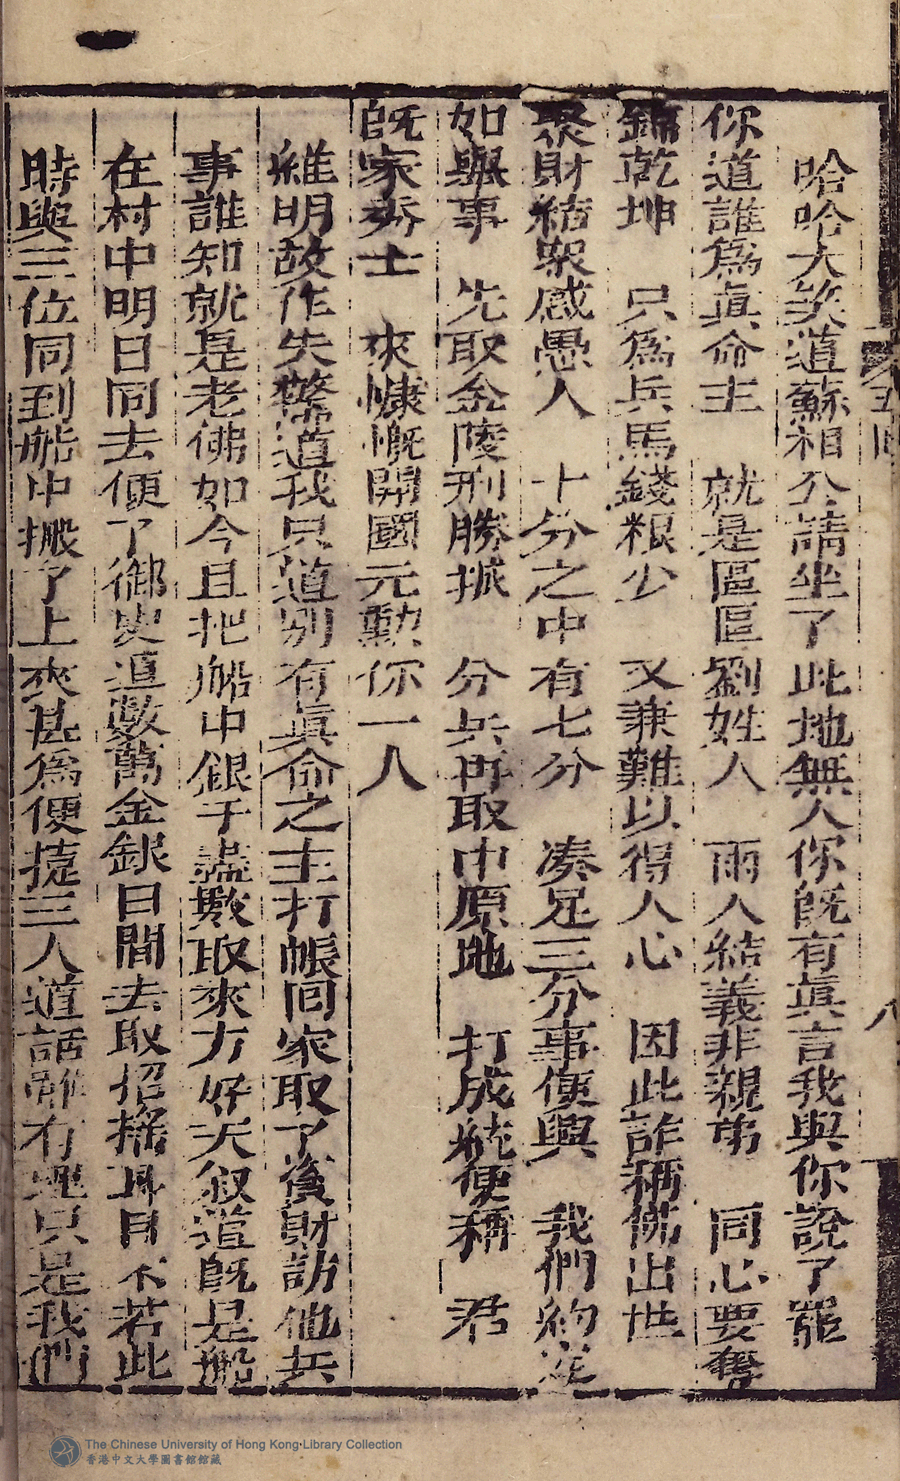 哈哈大笑道蘇相公請坐了此地無人你旣有眞言我與你說了罷
你道誰爲眞命主 就是區區劉姓人 兩人結義非親弟 同心要奪
錦乾坤 只爲兵馬錢粮少 又兼難以得人心 因此詐稱佛出世
聚財結衆感愚人 十分之中有七分 凑足三分事便與 我們約定
如舉事 先取金陵形勝城 分兵再取中原地 打成統便稱 君
旣家秀士 來慷慨開國元勲你一人
維明故作失驚道我只道別有眞命之主打帳回家取了後財訪他共
事誰知就是老佛如今且把船中銀子盡數取來方好天叙道旣是船
在村中明日同去便了御史道數萬金銀日間去取招搖耳目不若此
時與三位同到船中搬了上來甚爲便捷三人道話雖有理只是我們
五回
八
The Chinese University of Hong Kong·Library Collection
香港中文大學圖書館館藏